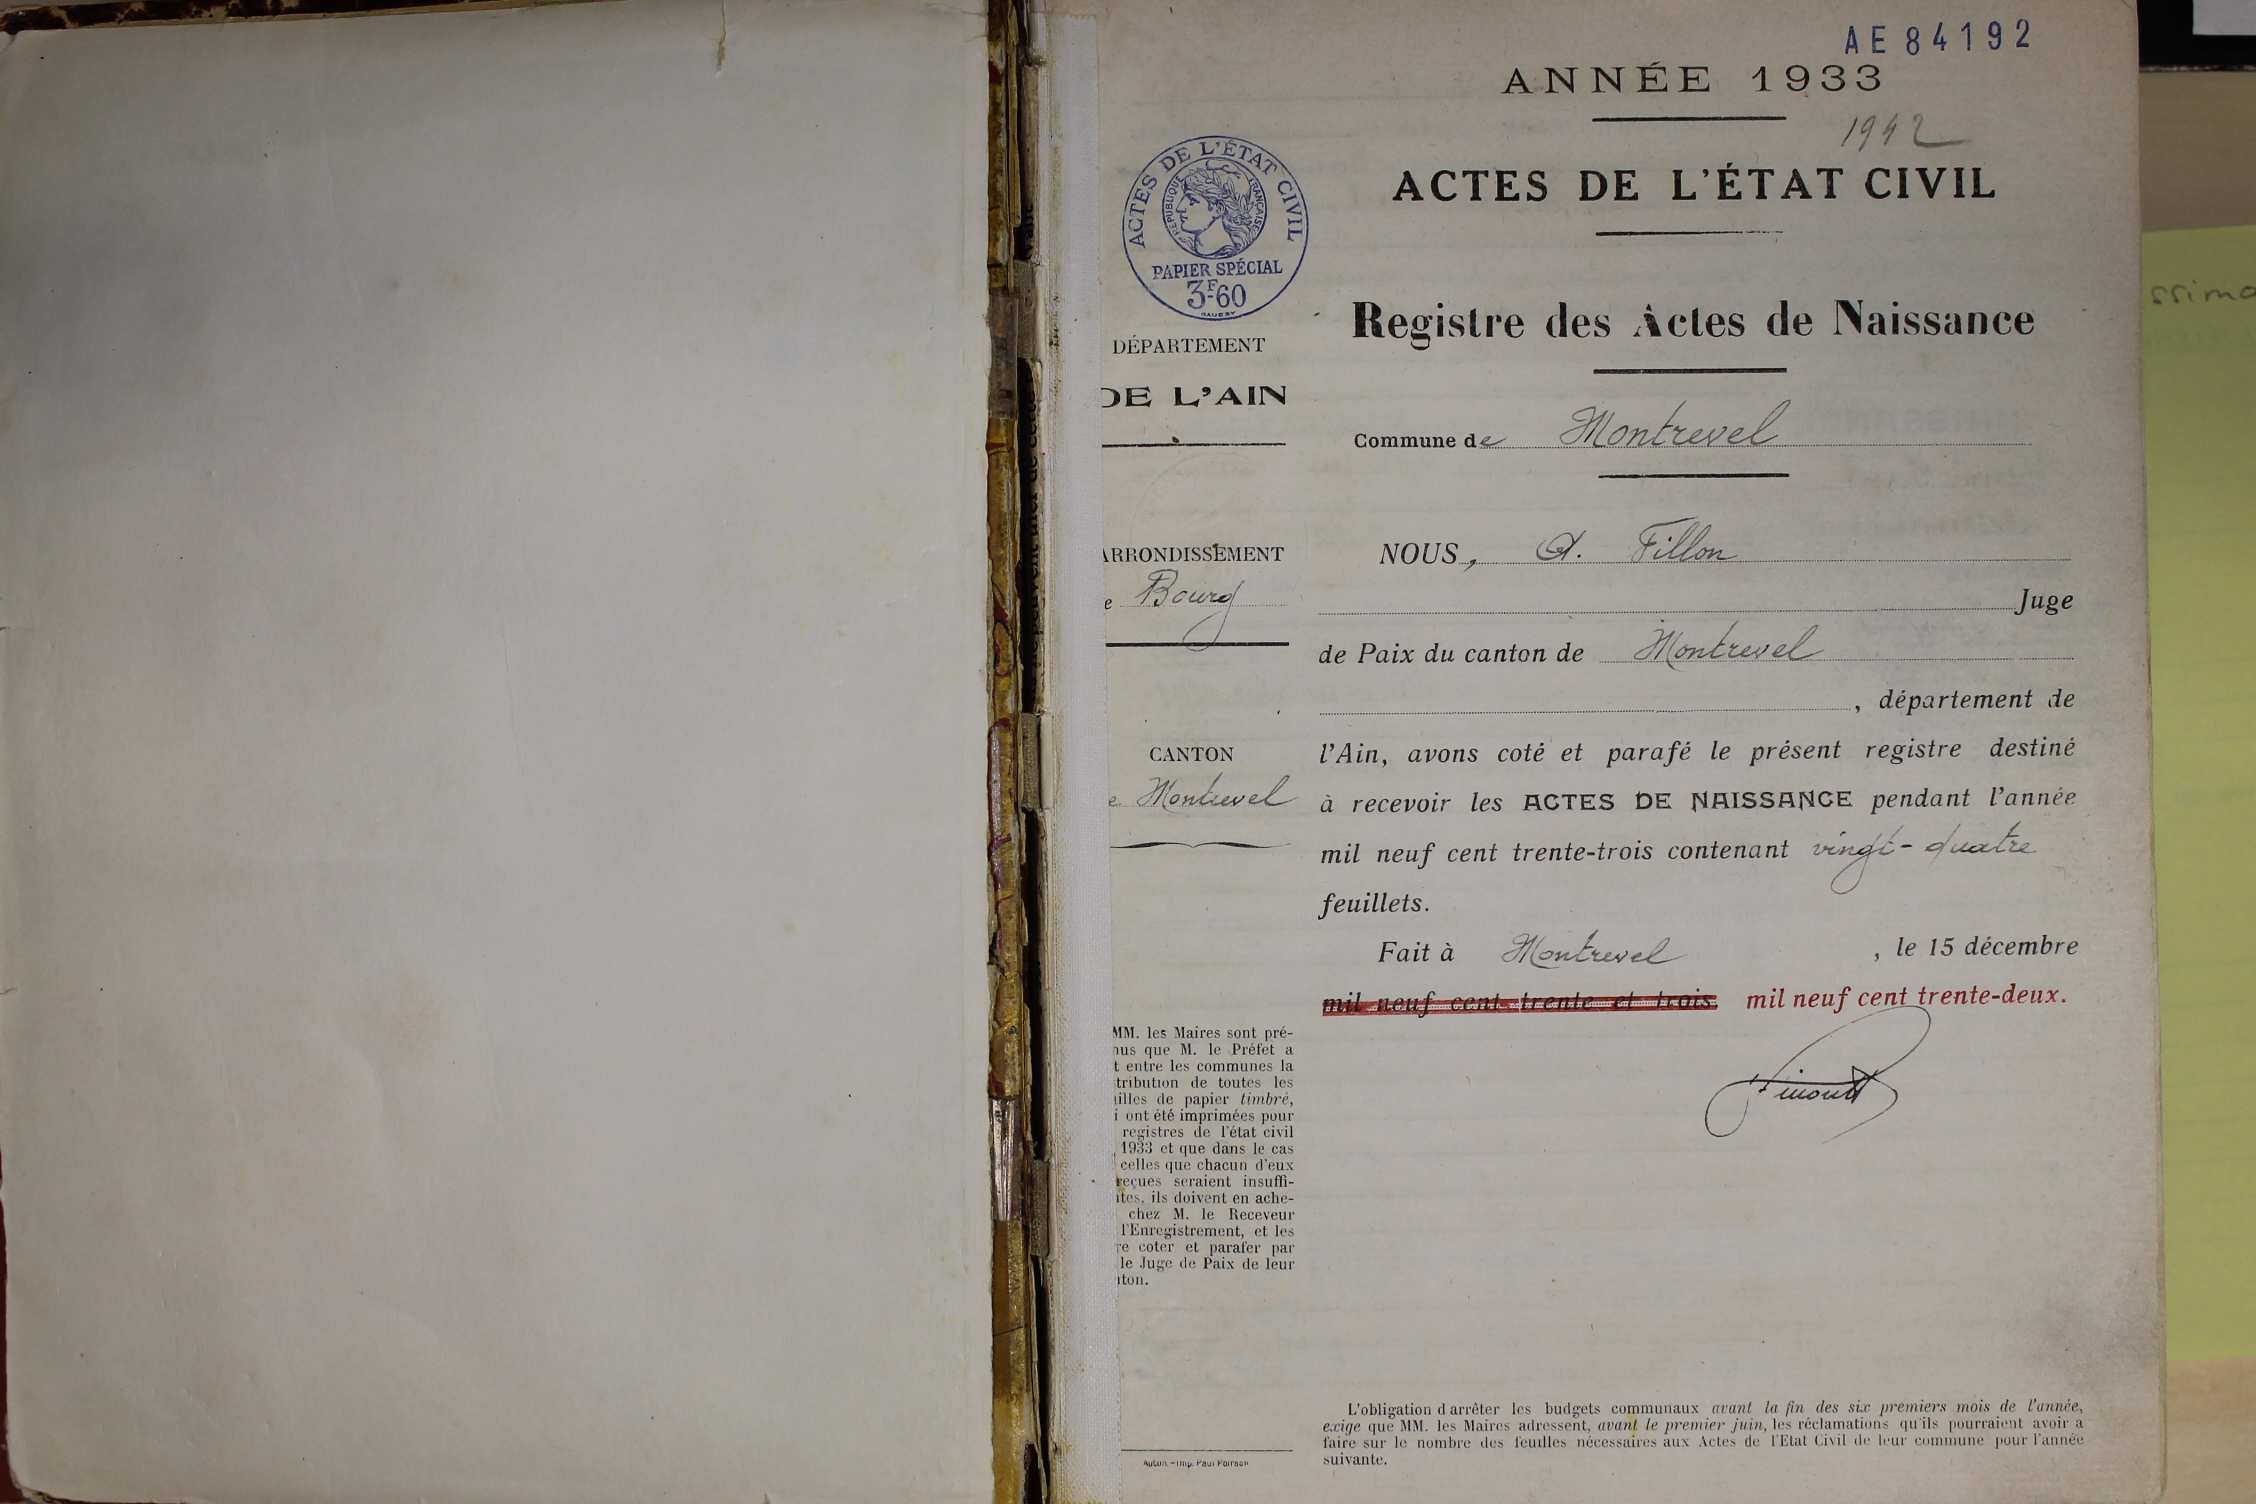 AE 84192
ANNÉE 1933
1942
ACTES DE L'ÉTAT CIVIL
Registre des Actes de Naissance
Commune de Montrevel
NOUS, A. Fillon
Juge
de Paix du canton de Montrevel
, département de
l'Ain, avons coté et parafé le présent registre destiné
à recevoir les ACTES DE NAISSANCE pendant l'année
mil neuf cent trente-trois contenant vingt-quatre
feuillets.
Fait à Montrevel, le 15 décembre
mil neuf cent trente et trois mil neuf cent trente-deux.
L'obligation d'arrêter les budgets communaux avant la fin des six premiers mois de l'année,
exige que MM. les Maires adressent, avant le premier juin, les réclamations qu'ils pourraient avoir a
faire sur le nombre des feuilles nécessaires aux Actes de l'Etat Civil de leur commune pour l'année
suivante.
ACTES DE L'ÉTAT CIVIL
RÉPUBLIQUE FRANÇAISE
PAPIER SPÉCIAL
3F-60
DÉPARTEMENT
DE L'AIN
ARRONDISSEMENT
e Bourg
CANTON
e Montrevel
MM. les Maires sont pré-
nus que M. le Préfet a
t entre les communes la
tribution de toutes les
illes de papier timbré,
i ont été imprimées pour
registres de l'état civil
1933 et que dans le cas
celles que chacun d'eux
reçues seraient insuffi-
tes, ils doivent en ache-
chez M. le Receveur
l'Enregistrement, et les
re coter et parafer par
le Juge de Paix de leur
ton.
Imp. Paul Poirson
ssima